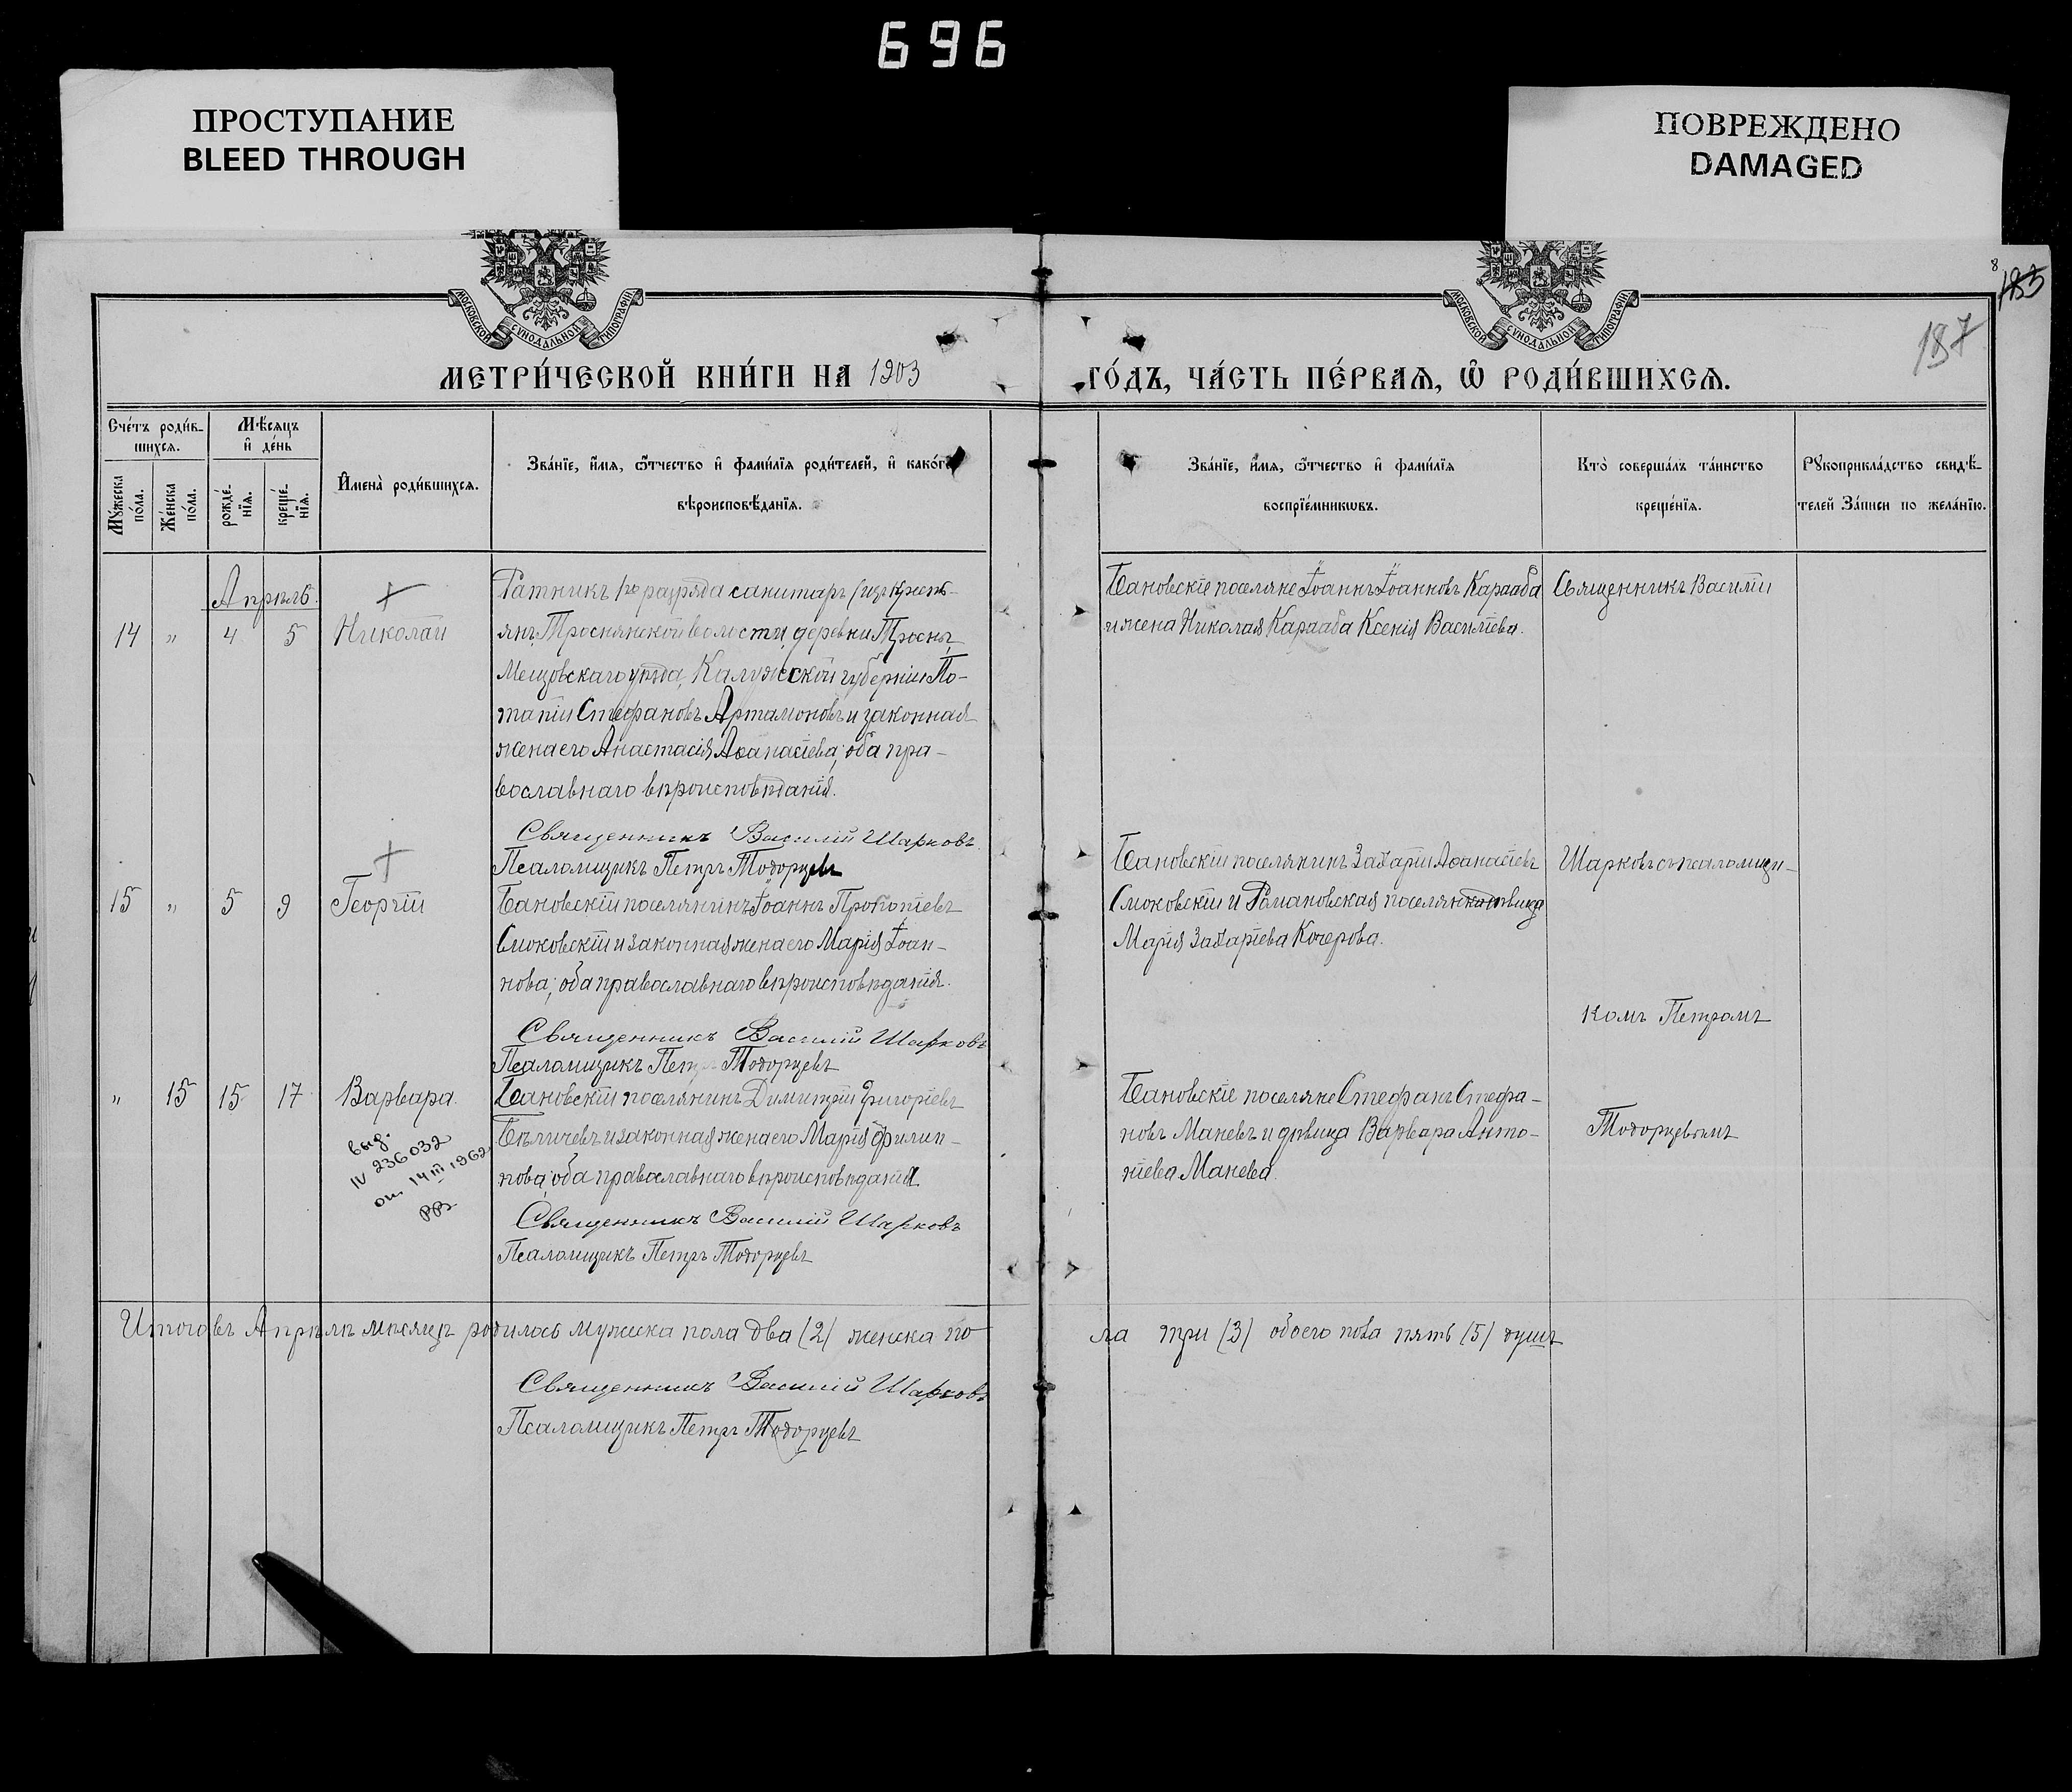 696
ПРОСТУПАНИЕ
BLEED THROUGH
ПОВРЕЖДЕНО
DAMAGED
МОСКОВСКОЙ СУНОДАЛЬНОЙ ТИПОГРАФІИ
МОСКОВСКОЙ СУНОДАЛЬНОЙ ТИПОГРАФІИ
8
185
187
МЕТРИ́ЧЕСКОЙ КНИ́ГИ НА 1903
ГО́ДЪ, ЧА́СТЬ ПЕ́РВАѦ, Ѡ҆ РОДИ́ВШИХСѦ.
Сче́тъ роди́в-
шихсѧ.
Мѣ́сѧцъ
и҆ де́нь
Мꙋ́жеска по́ла.
Же́нска по́ла.
рожде́-
нїѧ.
креще́-
нїѧ.
И҆мена̀ роди́вшихсѧ.
Зва́нїе, и҆́мѧ, ѻ҆́тчество и҆ фами́лїѧ роди́телей, и҆ како́гѡ
вѣроисповѣ́данїѧ.
Зва́нїе, и҆́мѧ, ѻ҆́тчество и҆ фами́лїѧ
воспрїе́мникѡвъ.
Кто̀ соверша́лъ та́инство
креще́нїѧ.
Рꙋкоприкла́дство свидѣ́-
телей За́писи по жела́нїю.
Апрѣль.
14 " 4 5 Николай
Ратникъ 1го разряда санитаръ (изъ кресть-
янъ, Троснянской волости, деревни Тросны,
Мещовскаго уѣзда, Калужской губерніи По-
тапій Стефановъ Артамоновъ и законная
жена его Анастасія Аѳанасіева; оба пра-
вославнаго вѣроисповѣданія.
Священникъ Василій Шарковъ
Псаломщикъ Петръ Тодорцевъ
Бановскіе поселяне Іоаннъ Іоанновъ Карааба
и жена Николая Карааба Ксенія Василіева.
Священникъ Василій
15 " 5 9 Георгій
Бановскій поселянинъ Іоаннъ Прокопіевъ
Смоковскій и законная жена его Марія Іоан-
нова; оба православнаго вѣроисповѣданія.
Священникъ Василій Шарковъ
Псаломщикъ Петръ Тодорцевъ
Бановскій поселянинъ Захарій Аѳанасіевъ
Смоковскій и Романовская поселянка дѣвица
Марія Захаріева Кочерова.
Шарковъ съ псаломщи-
комъ Петромъ
" 15 15 17 Варвара.
выд.
IV 236032
от 14 III 1962
Бановскій поселянинъ Димитрій Григоріевъ
Бѣличевъ и законная жена его Марія Филип-
пова; оба православнаго вѣроисповѣданія.
Священникъ Василій Шарковъ
Псаломщикъ Петръ Тодорцевъ
Бановскіе поселяне Стефанъ Стефа-
новъ Маневъ и дѣвица Варвара Анто-
ніева Манева.
Тодорцевымъ
Итого въ Апрѣлѣ мѣсяцѣ родилось мужска пола два (2) женска по
ла три (3) обоего пола пять (5) душъ
Священникъ Василій Шарковъ
Псаломщикъ Петръ Тодорцевъ